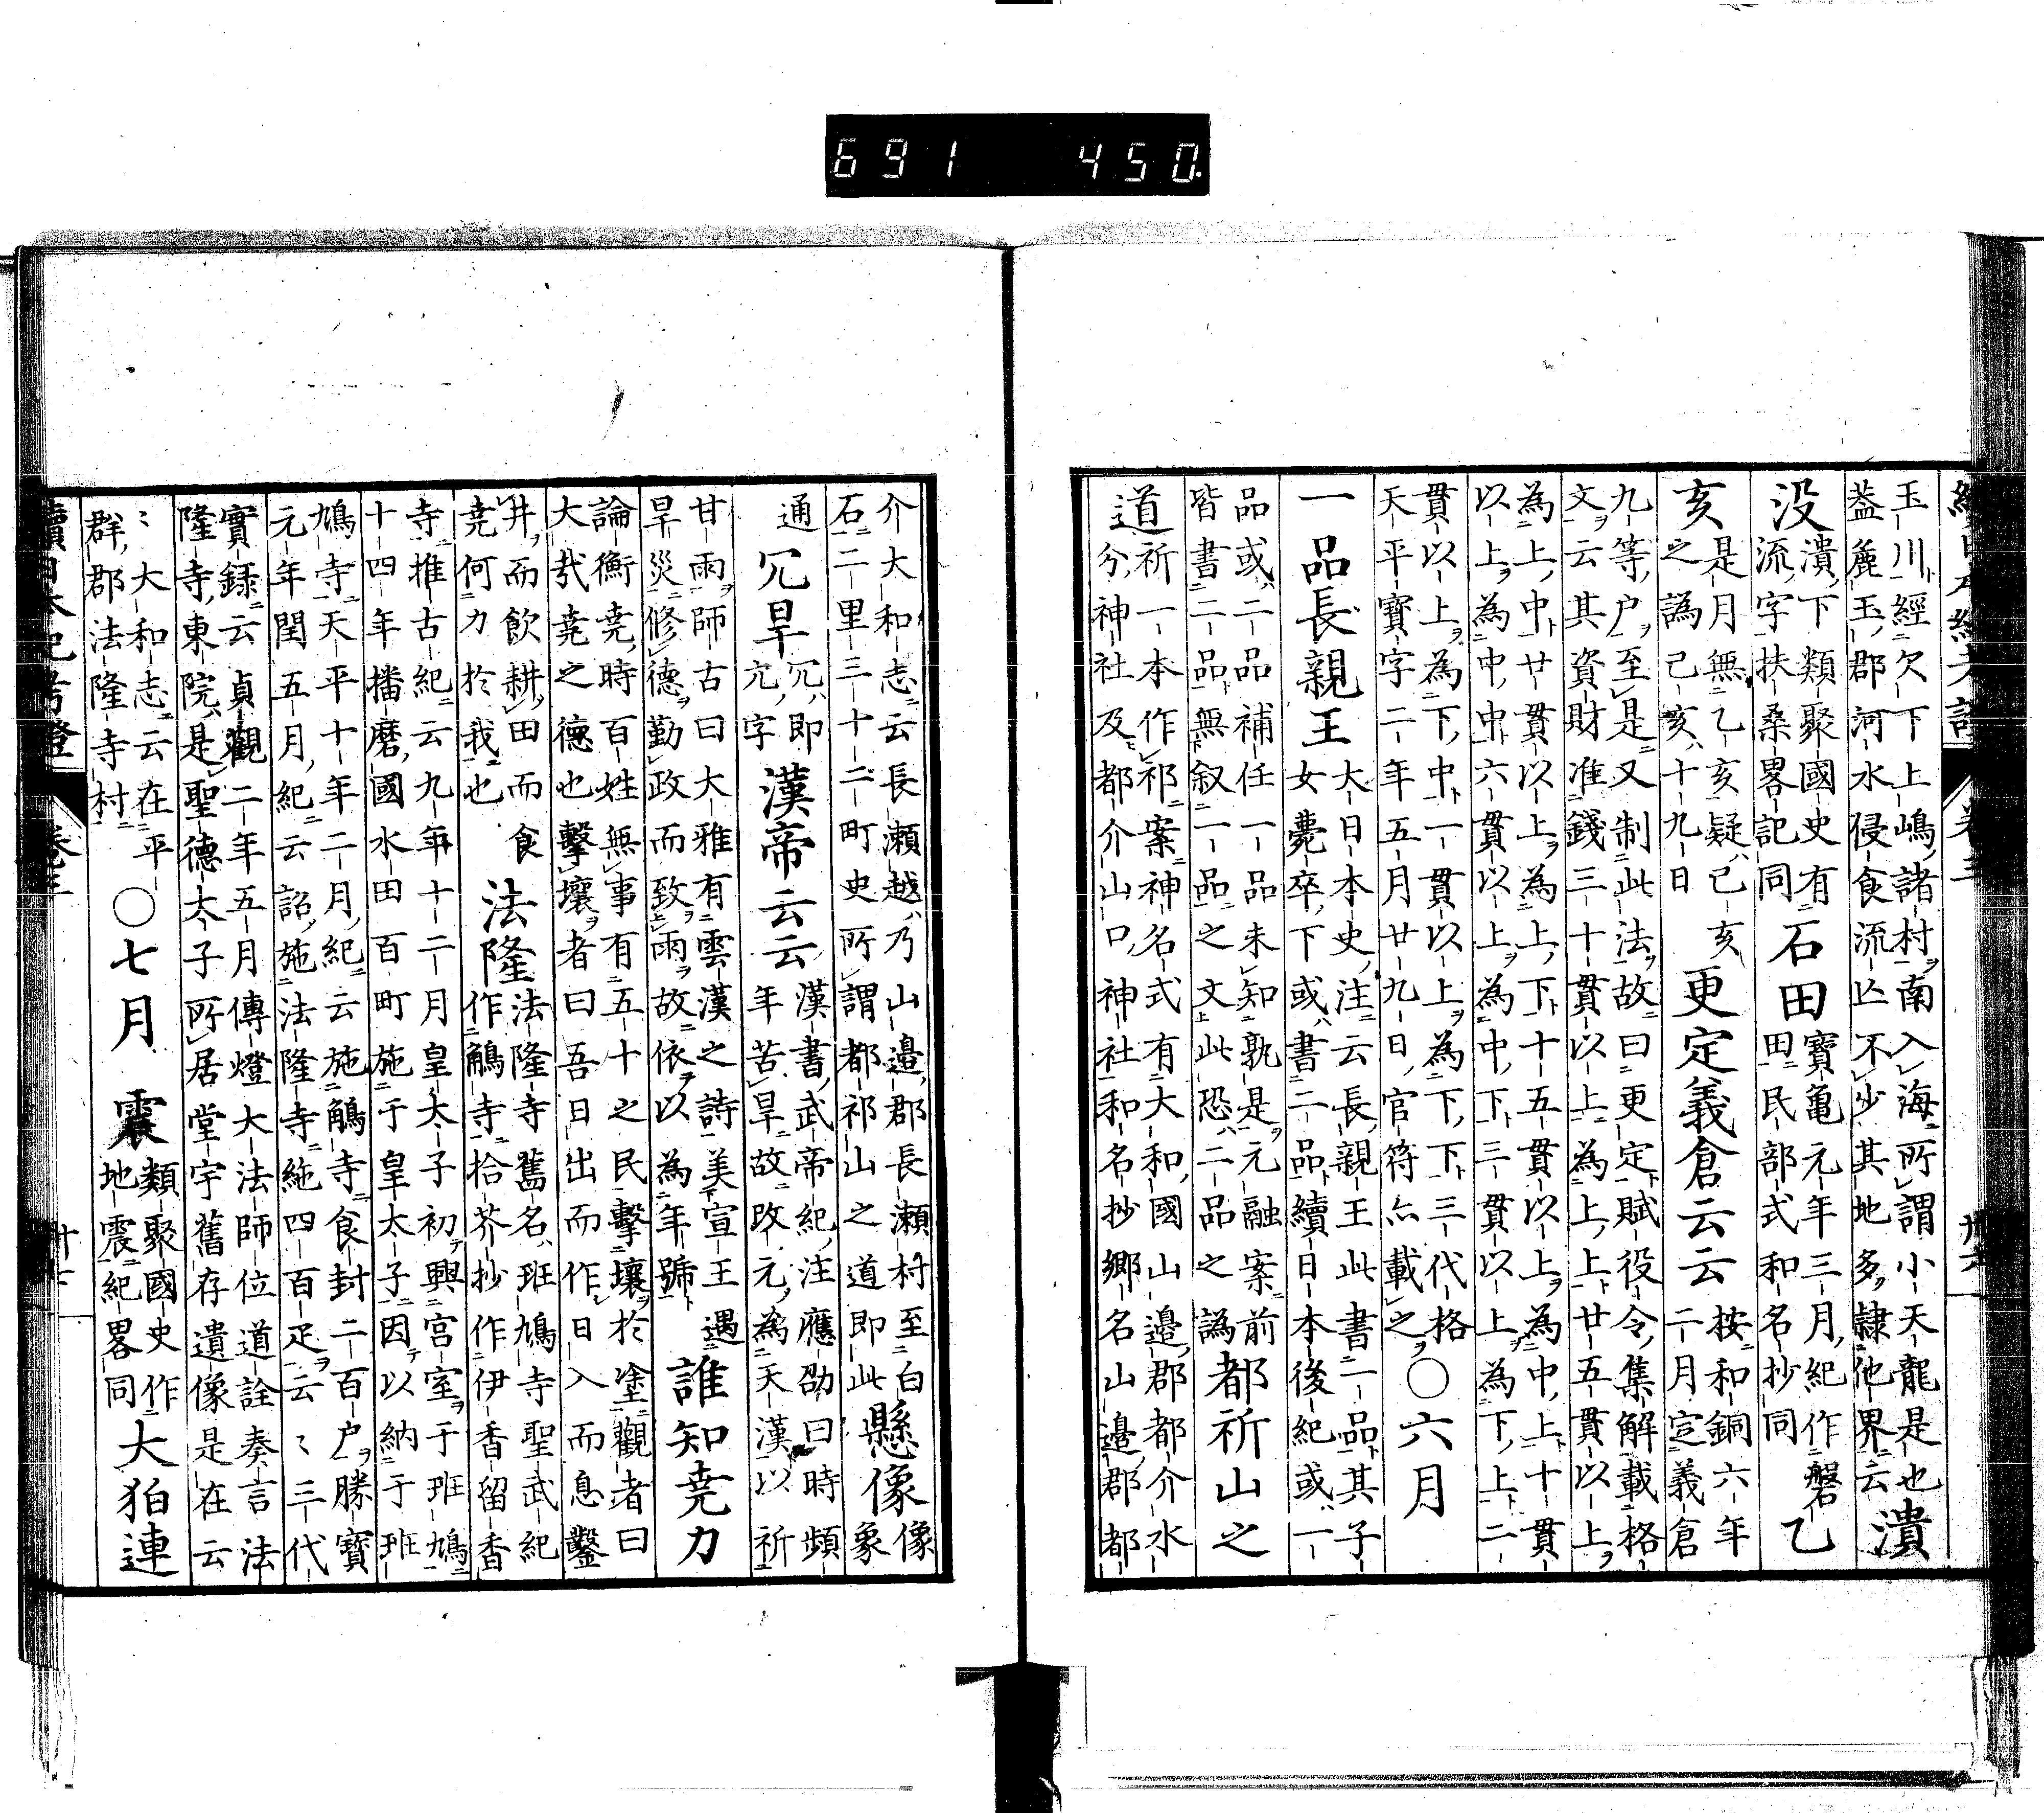 691 450
玉川經欠下上嶋諸村南入海所謂小天龍是也
蓋麁玉郡河水侵食流亡不少其地多隷他界云
潰
没
潰下類聚國史有
流字扶桑畧記同
石田
寶亀元年三月紀作磐
田民部式和名抄同
乙
亥
是月無乙亥疑己亥
之譌己亥十九日
更定義倉云云
按和銅六年
二月定義倉
九等户至是又制此法故曰更定賦役令集解載格
文云其資財准錢三十貫以上為上上廿五貫以上
為上中廿貫以上為上下十五貫以上為中上十貫
以上為中中六貫以上為中下三貫以上為下上二
貫以上為下中一貫以上為下下三代格
天平寶字二年五月廿九日官符亦載之
○六月
一品長親王
大日本史注云長親王此書一品其子
女薨卒下或書二品續日本後紀或一
品或二品補任一品未知孰是元融案前
皆書二品無叙一品之文此恐二品之譌
都祈山之
道
祈一本作祁案神名式有大和國山邉郡都介水
分神社及都介山口神社和名抄郷名山邉郡都
介大和志云長瀬越乃山邉郡長瀬村至白
石二里三十二町史所謂都祁山之道即此
懸像
像
象
通
冗旱
冗即
亢字
漢帝云云
漢書武帝紀注應劭曰時頻
年苦旱故改元為天漢以祈
甘雨師古曰大雅有雲漢之詩美宣王遇
旱災修德勤政而致雨故依以為年號
誰知堯力
論衡堯時百姓無事有五十之民擊壤於塗觀者曰
大㢤堯之德也擊壤者曰吾日出而作日入而息鑿
井而飲耕田而食
堯何力於我也
法隆
法隆寺舊名班鳩寺聖武紀
作鵤寺拾芥抄作伊香留香
寺推古紀云九年十二月皇太子初興宮室于班鳩
十四年播磨國水田百町施于皇太子因以納于班
鳩寺天平十年二月紀云施鵤寺食封二百户勝寶
元年閏五月紀云詔施法隆寺絁四百疋云〻三代
實録云貞觀二年五月傳燈大法師位道詮奏言法
隆寺東院是聖德太子所居堂宇舊存遺像是在云
〻大和志云在平
群郡法隆寺村
○七月
震
類聚國史作
地震紀畧同
大狛連
續日本紀考證
卷三